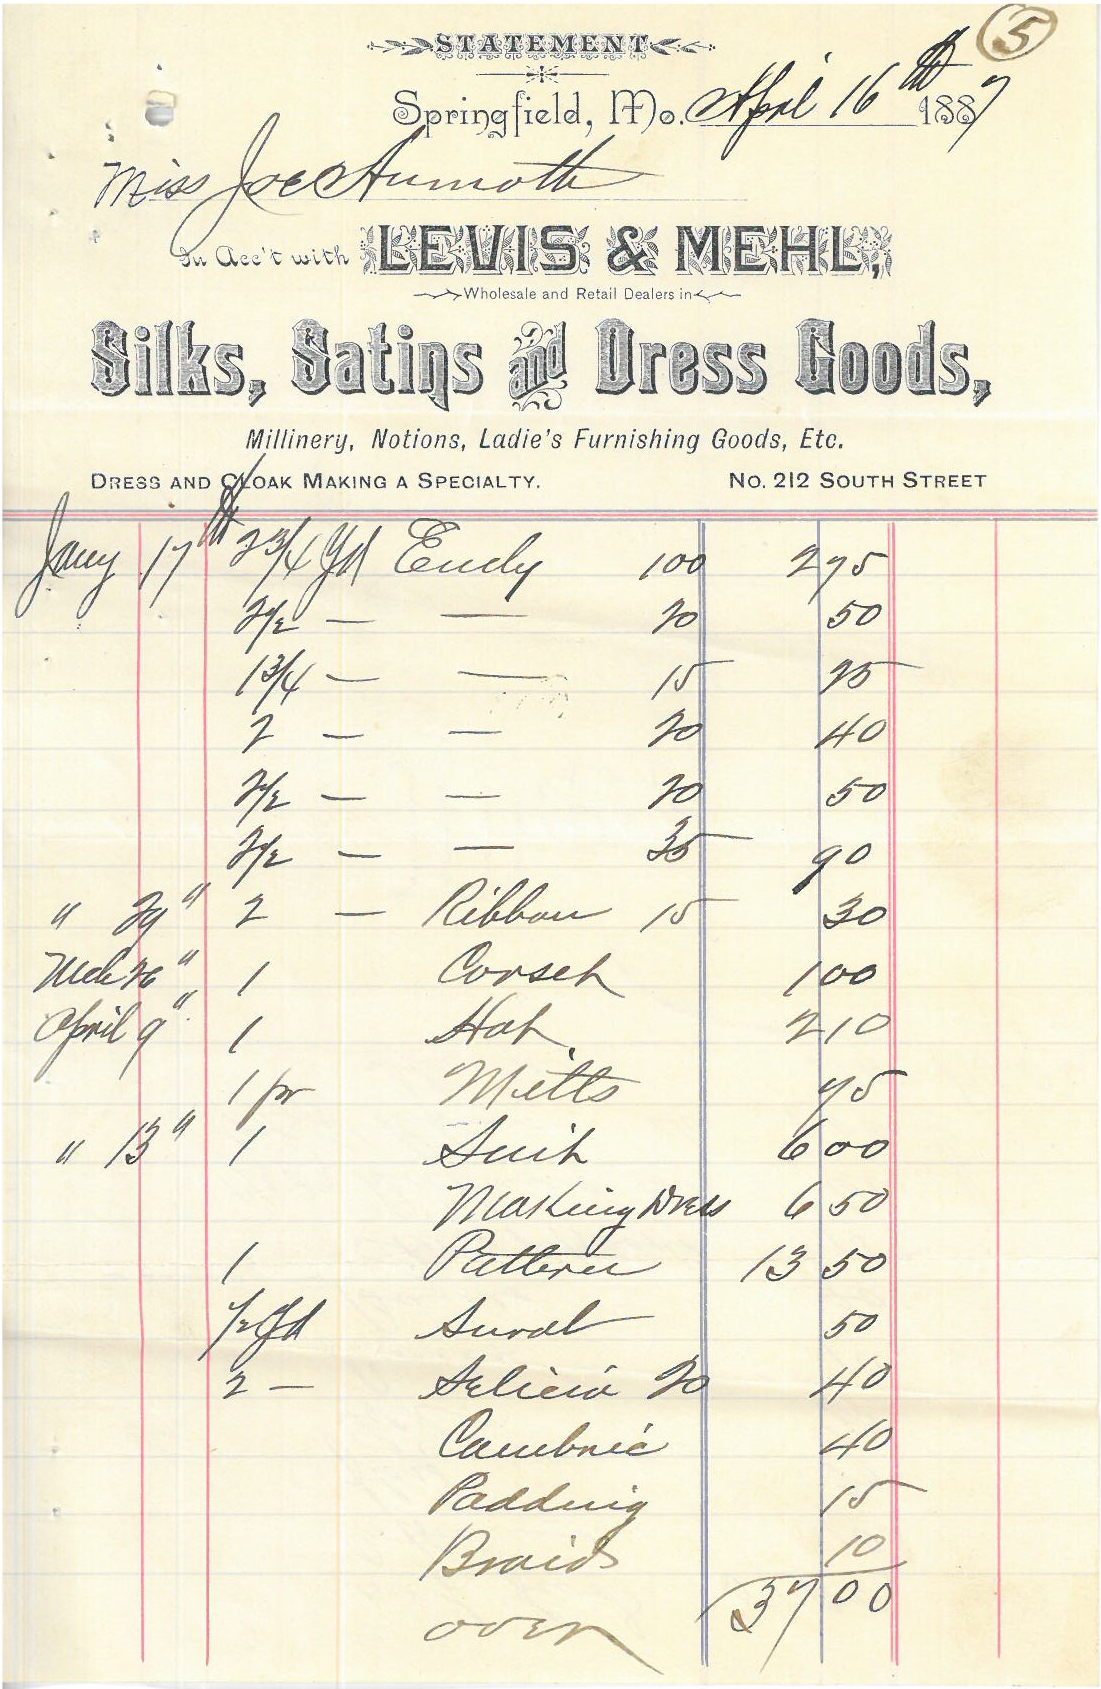 5
STATEMENT
Springfield, Mo. April 16th 1887
Miss Joe
In Acc't with LEVIS & MEHL,
Wholesale and Retail Dealers in
Silks, Satins and Dress Goods,
Millinery, Notions, Ladie's Furnishing Goods, Etc.
DRESS AND CLOAK MAKING A SPECIALTY. NO. 212 SOUTH STREET
Jany 17th 2 3/4 Yd 100 2 75
2 1/2 — — 20 50
1 3/4 — — 15 25
2 — — 20 40
2 1/2 — — 20 50
2 1/2 — — 35 90
" 29" 2 — Ribbon 15 30
Mch 26" 1 Corset 1 00
April 9" 1 Hat 2 10
1 pr Mitts 75
" 13" 1 Suit 6 00
Making Dress 6 50
1 Pattern 13 50
1/2 Yd Surah 50
2 — Selicia 20 40
Cambric 40
Padding 15
Braids 10
over 37 00